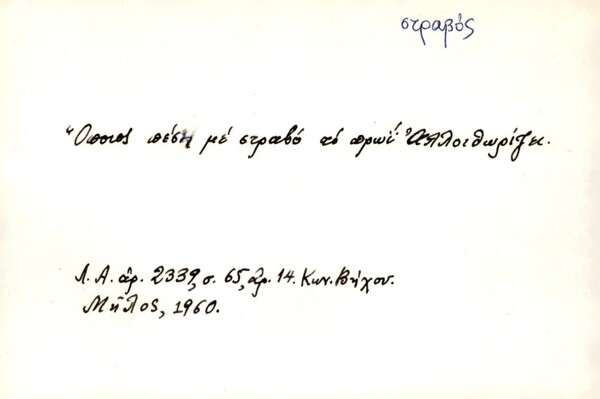 στραβός
Ὅποιος πέσῃ μέ στραβό τό πρωΐ ἀλλοιθωρίζει.
Λ. Α. ἀρ. 2339, σ. 65, ἀρ. 14. Κων. Βήχου.
Μῆλος, 1960.